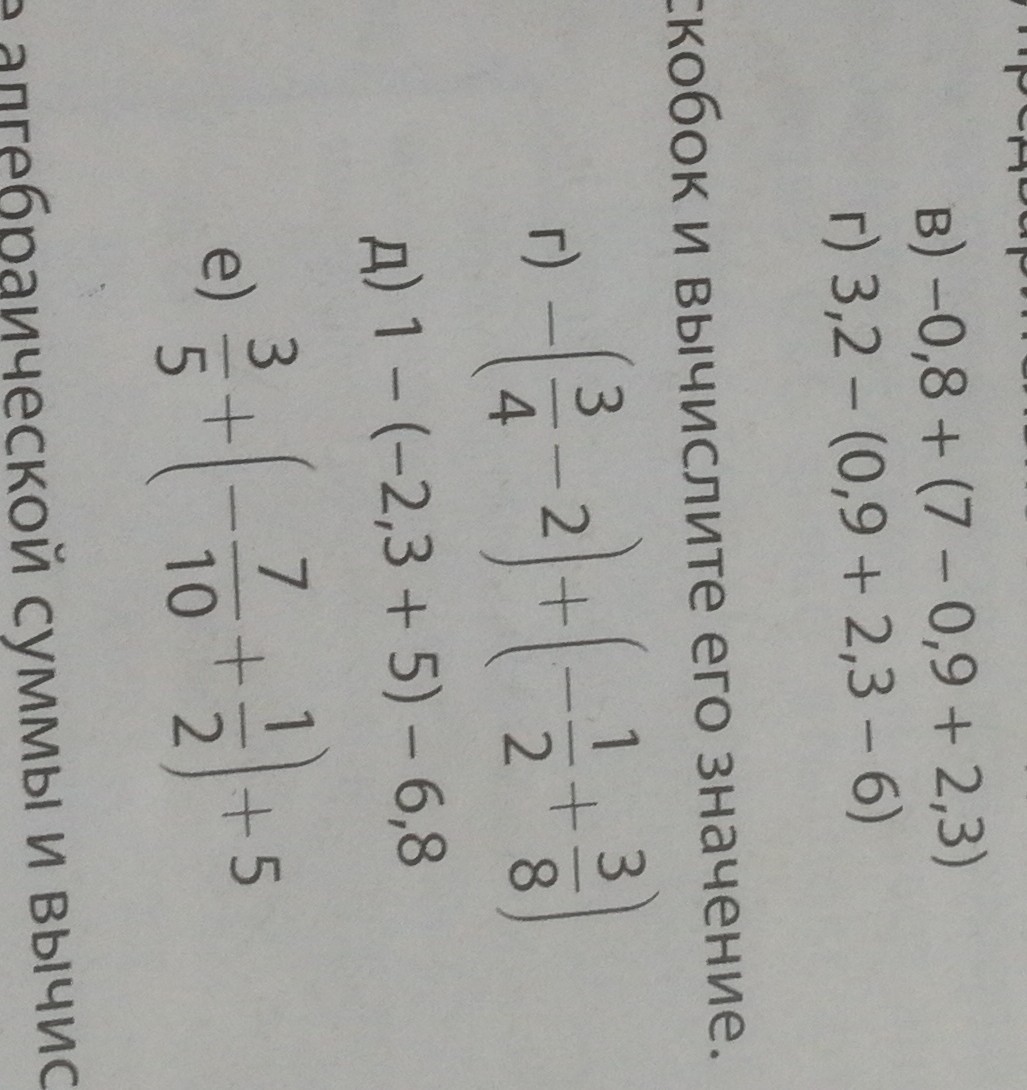 в) –0,8 + (7 – 0,9 + 2,3)
г) 3,2 – (0,9 + 2,3 – 6)
скобок и вычислите его значение.
г) –(3/4 – 2) + (–1/2 + 3/8)
д) 1 – (–2,3 + 5) – 6,8
е) 3/5 + (–7/10 + 1/2) + 5
алгебраической суммы и вычис